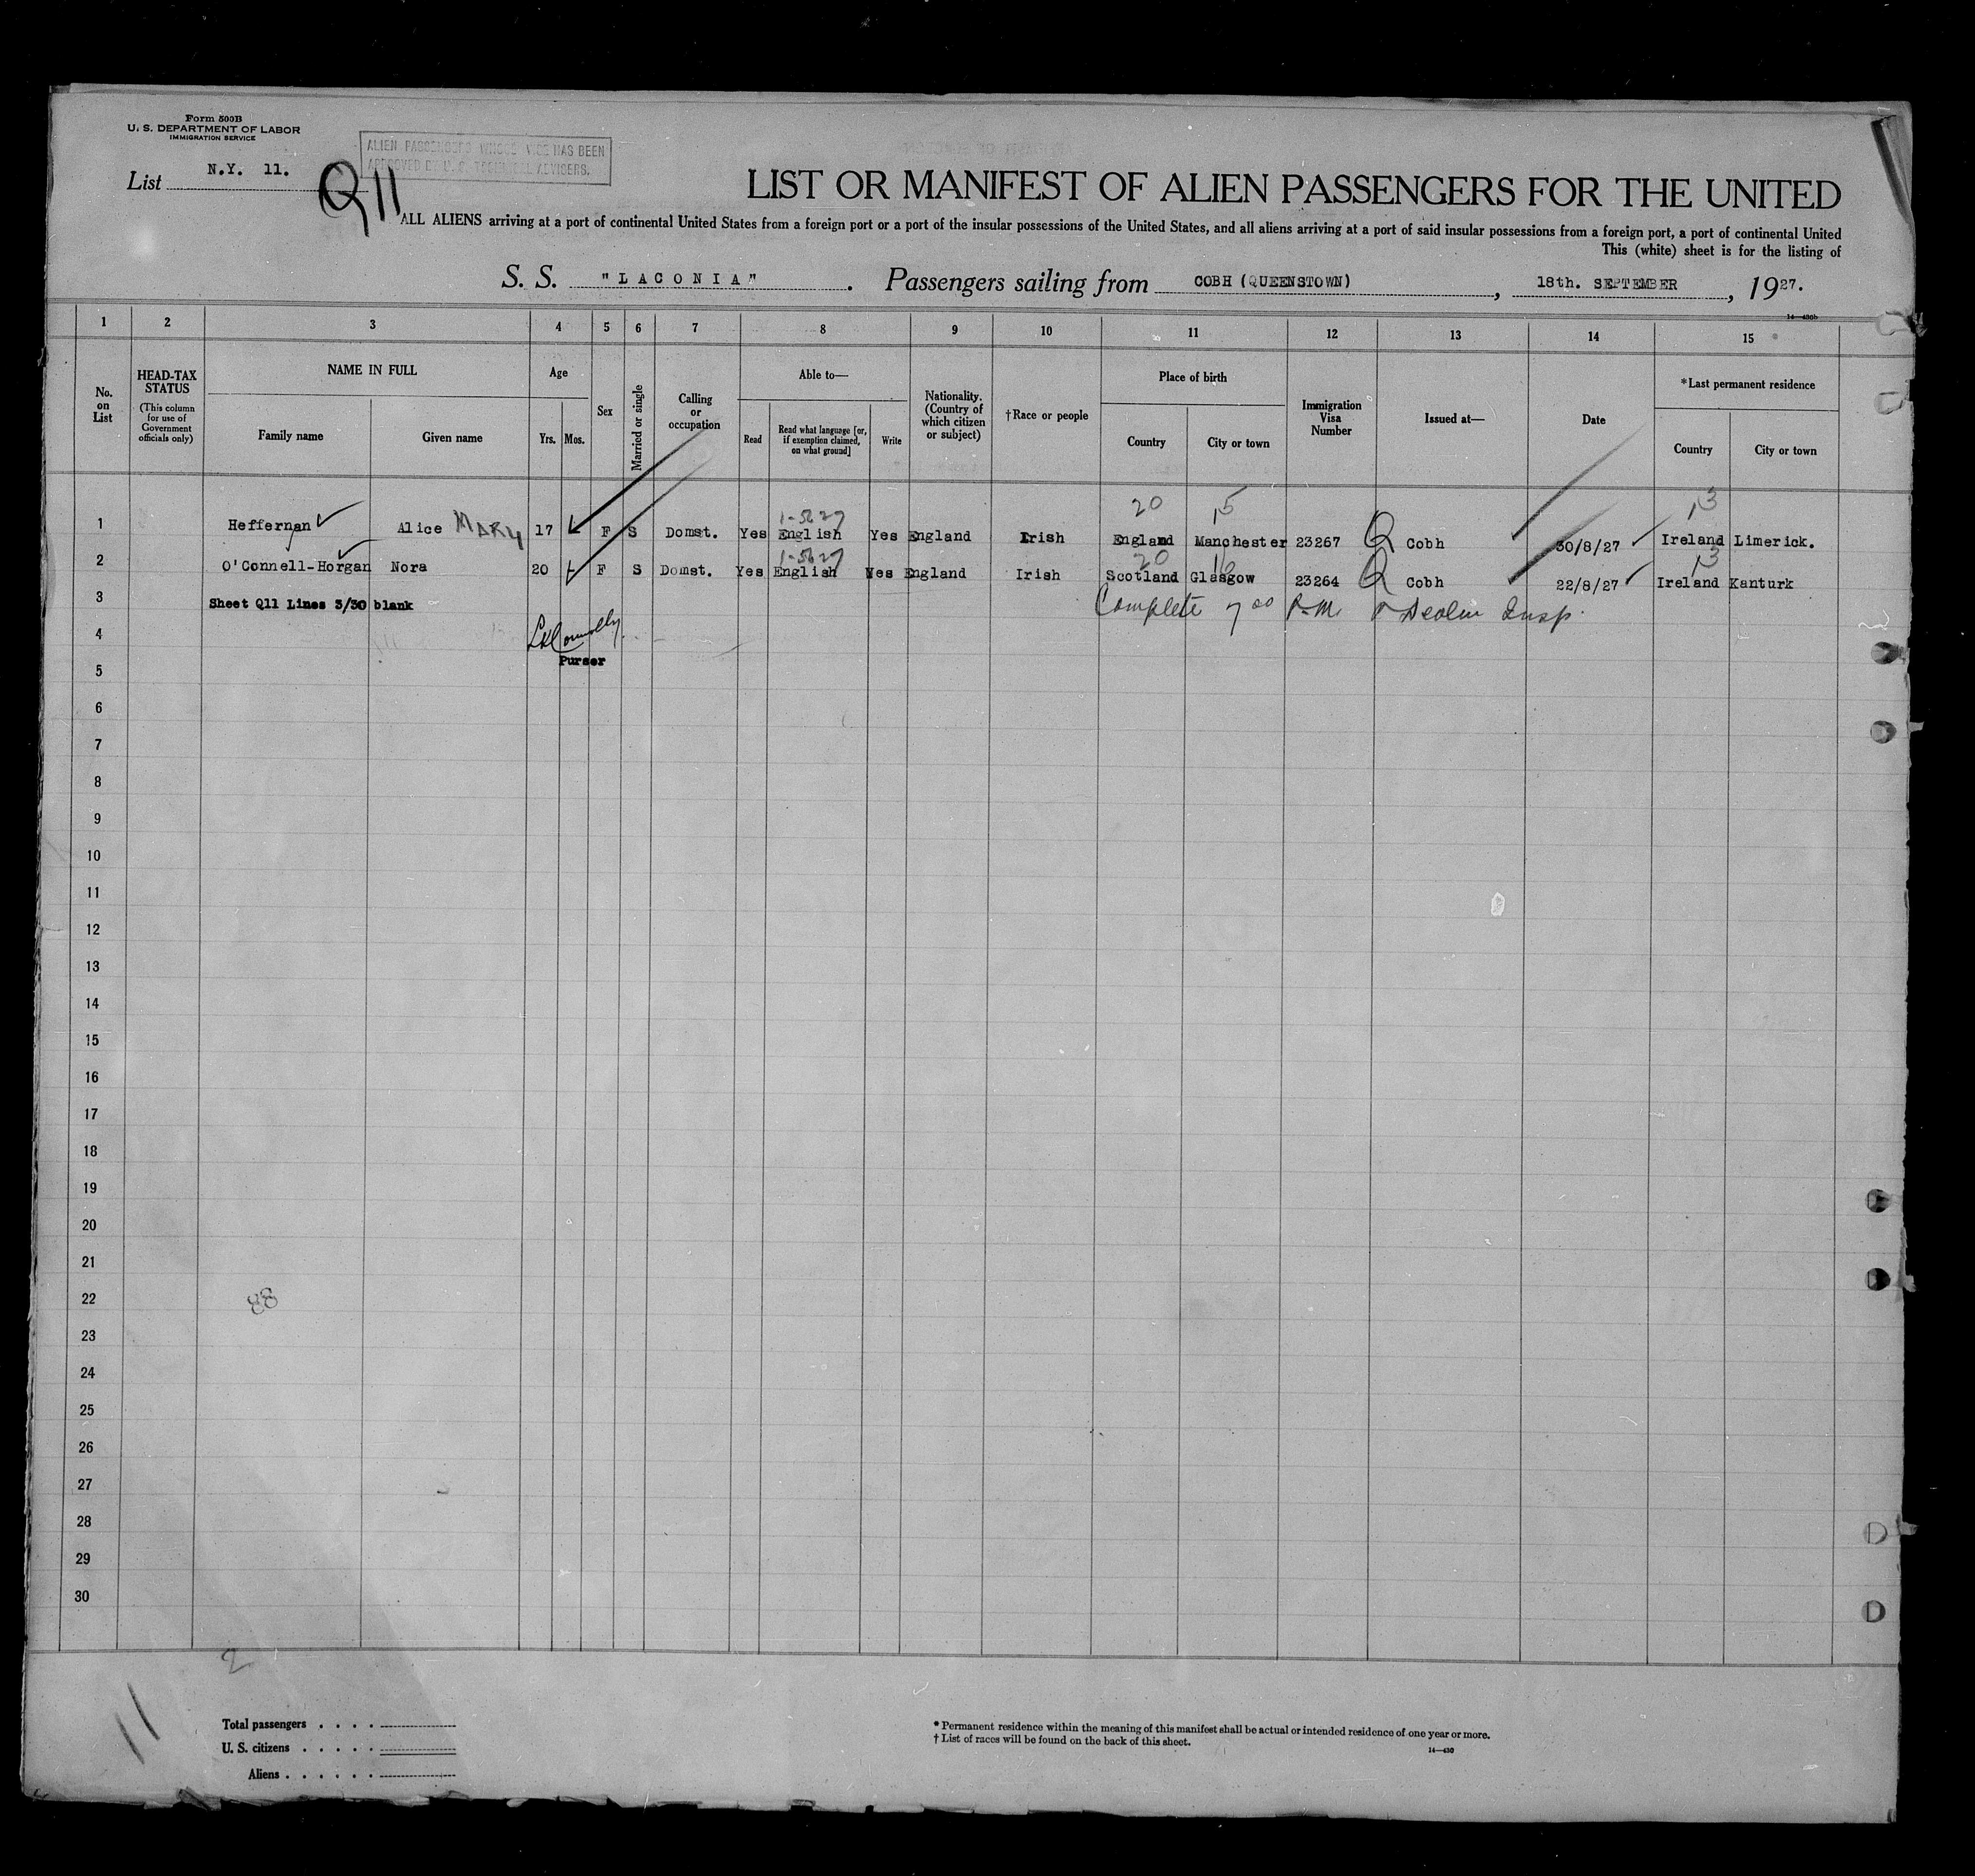 Form 500B
U. S. DEPARTMENT OF LABOR
IMMIGRATION SERVICE
ALIEN PASSENGERS WHOSE VICE HAS BEEN
APPROVED BY U. S. TECHNICAL ADVISERS.
List N.Y. 11.
Q11
LIST OR MANIFEST OF ALIEN PASSENGERS FOR THE UNITED
ALL ALIENS arriving at a port of continental United States from a foreign port or a port of the insular possessions of the United States, and all aliens arriving at a port of said insular possessions from a foreign port, a port of continental United
This (white) sheet is for the listing of
S. S. "LACONIA". Passengers sailing from COBH (QUEENSTOWN), 18th. SEPTEMBER, 1927.
14—430b
1 2 3 4 5 6 7 8 9 10 11 12 13 14 15
No. on List
HEAD-TAX STATUS (This column for use of Government officials only)
NAME IN FULL
Family name Given name
Age
Yrs. Mos.
Sex
Married or single
Calling or occupation
Able to—
Read Read what language [or, if exemption claimed, on what ground] Write
Nationality. (Country of which citizen or subject)
†Race or people
Place of birth
Country City or town
Immigration Visa Number
Issued at—
Date
*Last permanent residence
Country City or town
20 15 13
1-5627
1 Heffernan Alice MARY 17 F S Domst. Yes English Yes England Irish England Manchester 23267 Q Cobh 30/8/27 Ireland Limerick.
1-5627 20 16 13
2 O'Connell-Horgan Nora 20 F S Domst. Yes English Yes England Irish Scotland Glasgow 23264 Q Cobh 22/8/27 Ireland Kanturk
3 Sheet Q11 Lines 3/30 blank Complete 7 00 P.M. Insp.
4 Connolly
Purser
5
6
7
8
9
10
11
12
13
14
15
16
17
18
19
20
21
22 88
23
24
25
26
27
28
29
30
2
11
Total passengers . . . .
U. S. citizens . . . . .
Aliens . . . . . .
* Permanent residence within the meaning of this manifest shall be actual or intended residence of one year or more.
† List of races will be found on the back of this sheet.
14—430